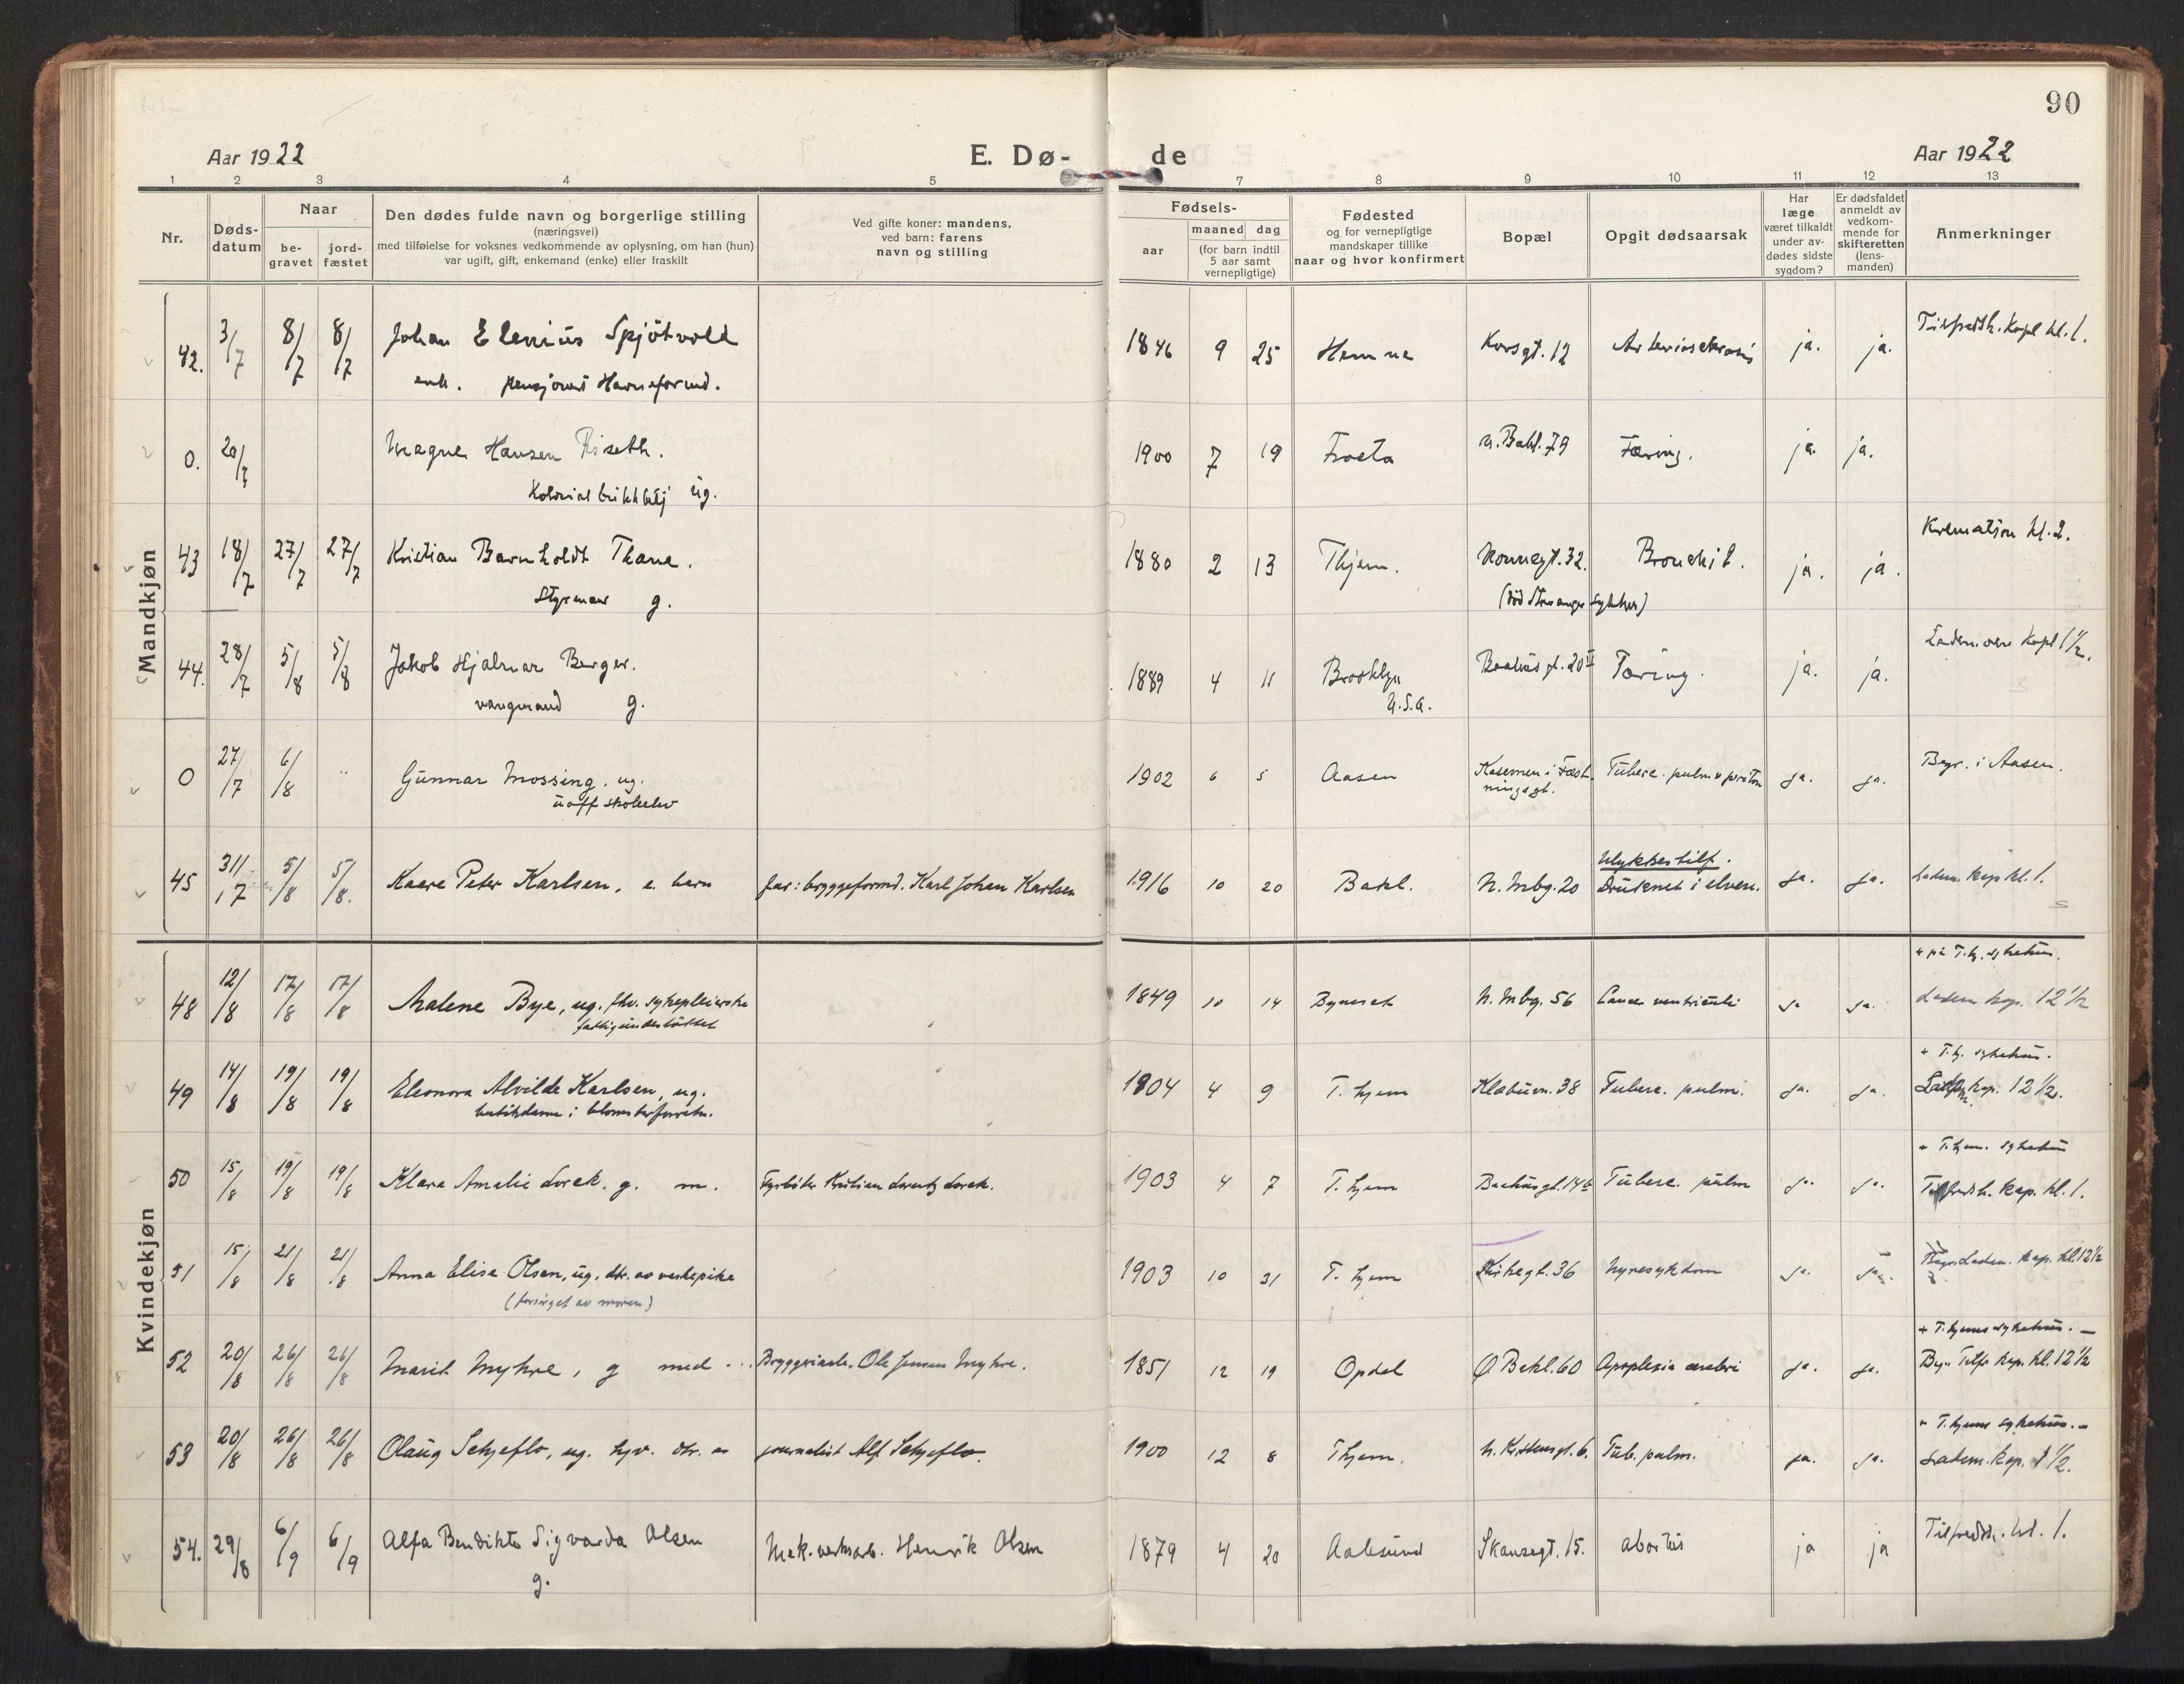 90
Aar 1922
E. Dø-
de
Aar 1922
1 2 3 4 5 7 8 9 10 11 12 13
Nr.
Døds-
datum
Naar
be-
gravet
jord-
fæstet
Den dødes fulde navn og borgerlige stilling
(næringsvei)
med tilføielse for voksnes vedkommende av oplysning, om han (hun)
var ugift, gift, enkemand (enke) eller fraskilt
Ved gifte koner: mandens,
ved barn: farens
navn og stilling
Fødsels-
aar
maaned dag
(for barn indtil
5 aar samt
vernepligtige)
Fødested
og for vernepligtige
mandskaper tillike
naar og hvor konfirmert
Bopæl
Opgit dødsaarsak
Har
læge
været tilkaldt
under av-
dødes sidste
sygdom?
Er dødsfaldet
anmeldt av
vedkom-
mende for
skifteretten
(lens-
manden)
Anmerkninger
Mandkjøn
42. 3/7 8/7 8/7 Johan Elenius Spjötvold 1846 9 25 Hemne Korsgt. 12 Arteriosclerosis ja. ja. Tilfredsh. Kapl kl. 1.
enk. pensjonert Havneformd.
0. 20/7 Magne Hansen Riseth. 1900 7 19 Frosta N. Bakl. 79 Tæring. ja. ja.
ug.
43 18/7 27/7 27/7 Kristian Barnholdt Thane. 1880 2 13 Thjem. Nonnegt. 32. Bronchit. ja. ja. Kremation kl. 2.
Styrmann g. (död Stavanger sykehus)
44. 28/7 5/8 5/8 Jakob Hjalmar Berger. 1889 4 11 Brooklyn Baahusgt. 20 II Tæring. ja. ja. Lademoen Kapl 1 1/2.
vangmand g. U.S.A.
0 27/7 6/8 .. Gunnar Mossing. ug. 1902 6 5 Aasen Kasernen i Fæst- Tuberc. pulm. & periton ja. ja. Begr. i Aasen.
uoff. skoleelev ningsgt.
Ulykkestilf.
45 31/7 5/8 5/8. Kaare Peter Karlsen, e. barn far: bryggeformd. Karl Johan Karlsen 1916 10 20 Bakl. N. Mbg. 20 Druknet i elven. ja. ja. Ladem. kap kl. 1.
Kvindekjøn
+ på T.hj. sykehus.
48 12/8 17/8 17/8 Malene Bye, ug. fhv. sykepleierske 1849 10 14 Byneset N. Mbg. 56 Cancer ventriculi ja ja. Ladem kap. 12 1/2
fattigunderstöttet
+ T.hj. sykehus.
49 14/8 19/8 19/8 Eleonora Alvilde Karlsen, ug. 1904 4 9 T. hjem Klæbuvn. 38 Tuberc. pulm. ja. ja. Ladem kap. 12 1/2.
butikdame i blomsterforretn.
+ T. hjem. sykehus
50 15/8 19/8 19/8 Klara Amalie Lorck. g. m. Fyrböter Kristian Lorentz Lorck. 1903 4 7 T. hjem Baahusgt. 14 b Tuberc. pulm ja. ja. Tilfredsh. kap. kl. 1.
51 15/8 21/8 21/8 Anna Elise Olsen, ug. dtr. av vaskepike 1903 10 31 T. hjem Kirkegt. 36 Nyresykdom ja. ja. Begr. Ladem. kap. kl. 12 1/2
(forsörget av moren)
+ T. hjems sykehus. -
52 20/8 26/8 26/8 Marit Myhre, g med ... Bryggeriarb. Ole Jensen Myhre. 1851 12 19 Opdal Ø. Bakl. 60 Apoplexia cerebri ja. ja. Begr. Tilfr. kap. kl. 12 1/2
+ T. hjems sykehus. -
53 20/8 26/8 26/8 Olaug Schjeflo, ug. hjv. dtr. av journalist Alf. Schjeflo. 1900 12 8 T hjem. Tub. pulm. ja. ja. Ladem. kap. 1 1/2.
54. 29/8 6/9 6/9 Alfa Bendikte Sigvarda Olsen Mek. verksarb. Henrik Olsen 1879 4 20 Aalesund Skansegt. 15. abortus ja ja Tilfredsh. kl. 1.
g.